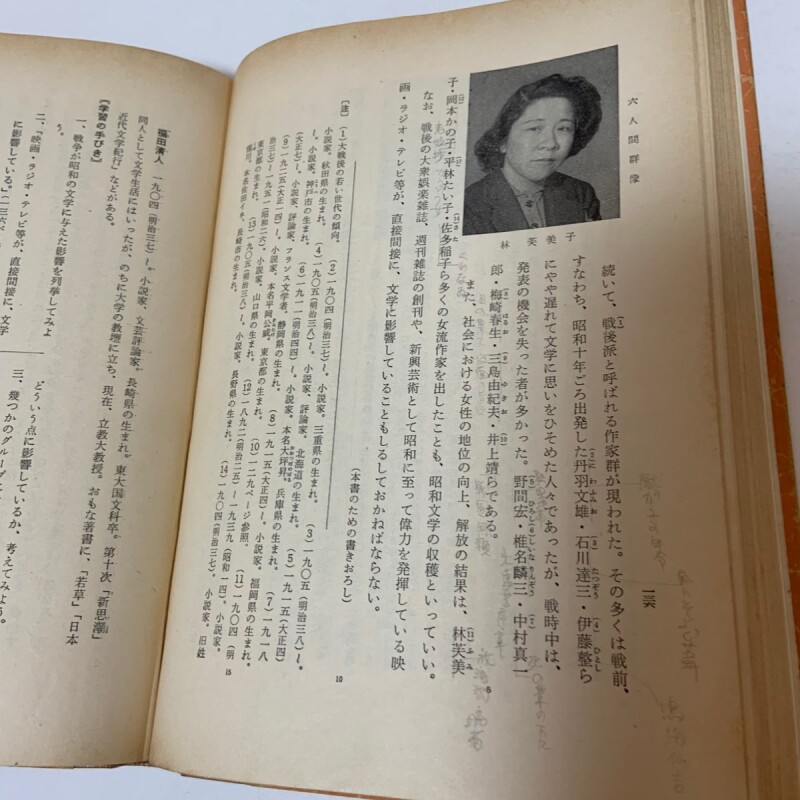 六 人間群像
一三六
林芙美子
続いて、戦後派と呼ばれる作家群が現われた。その多くは戦前、
すなわち、昭和十年ごろ出発した丹羽文雄・石川達三・伊藤整ら
にやや遅れて文学に思いをひそめた人々であったが、戦時中は、
発表の機会を失った者が多かった。野間宏・椎名麟三・中村真一
郎・梅崎春生・三島由紀夫・井上靖らである。
また、社会における女性の地位の向上、解放の結果は、林芙美
子・岡本かの子・平林たい子・佐多稲子ら多くの女流作家を出したことも、昭和文学の収穫といっていい。
なお、戦後の大衆娯楽雑誌、週刊雑誌の創刊や、新興芸術として昭和に至って偉力を発揮している映
画・ラジオ・テレビ等が、直接間接に、文学に影響していることもしるしておかねばならない。
(本書のための書きおろし)
5
10
15
〔注〕 (1)大戦後の若い世代の傾向。 (2)一九〇四(明治三七)〜。小説家、三重県の生まれ。 (3)一九〇五(明治三八)〜。
小説家、秋田県の生まれ。 (4)一九〇五(明治三八)〜。小説家、評論家、北海道の生まれ。 (5)一九一五(大正四)
〜。小説家、神戸市の生まれ。 (6)一九一一(明治四四)〜。小説家。本名大坪昇。兵庫県の生まれ。 (7)一九一八
(大正七)〜。小説家、評論家、フランス文学者。静岡県の生まれ。 (8)一九一五(大正四)〜。小説家。福岡県の生まれ。
(9)一九二五(大正一四)〜。小説家。本名平岡公威。東京都の生まれ。 (10)一二九ページ参照。 (11)一九〇四(明
治三七)〜一九五一(昭和二六)。小説家。山口県の生まれ。 (12)一八九二(明治二五)〜一九三九(昭和一四)。小説家。
東京都の生まれ。 (13)一九〇五(明治三八)〜。小説家、長野県の生まれ。 (14)一九〇四(明治三七)〜。小説家。旧姓
本名佐田イネ。長崎市の生まれ。
福田清人 一九〇四(明治三七)〜。小説家、文芸評論家。長崎県の生まれ。東大国文科卒。第十次「新思潮」
同人として文学生活にはいったが、のちに大学の教壇に立ち、現在、立教大教授。おもな著書に、「若草」「日本
近代文学紀行」などがある。
〔学習の手びき〕
一、戦争が昭和の文学に与えた影響を列挙してみよ
う。
二、「映画・ラジオ・テレビ等が、直接間接に、文学
に影響している。」(一三六ペ
どういう点に影響しているか、考えてみよう。
三、幾つかのグループ